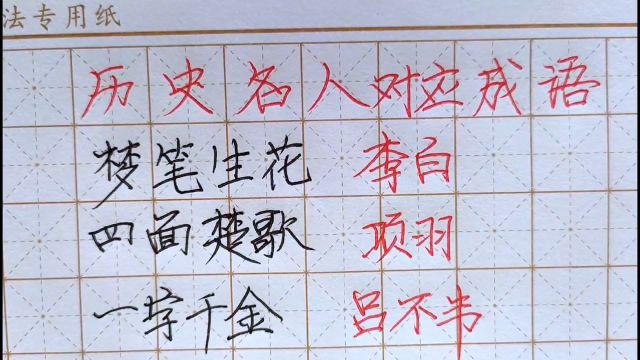 法专用纸
历史名人对应成语
梦笔生花 李白
四面楚歌 项羽
一字千金 吕不韦